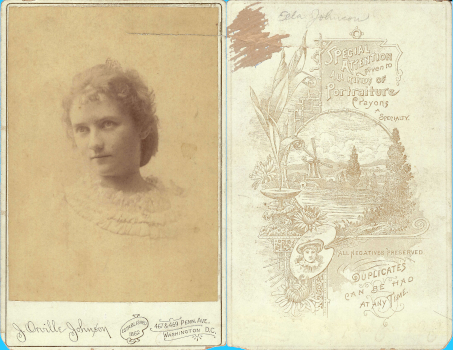 J. Orville Johnson
ESTABLISHED
1862
467 & 469 PENN. AVE.
WASHINGTON D.C.
Johnson
SPECIAL
ATTENTION
GIVEN TO
ALL KINDS OF
Portraiture
Crayons
A
SPECIALTY.
ALL NEGATIVES PRESERVED
DUPLICATES
CAN BE HAD
AT ANY TIME.